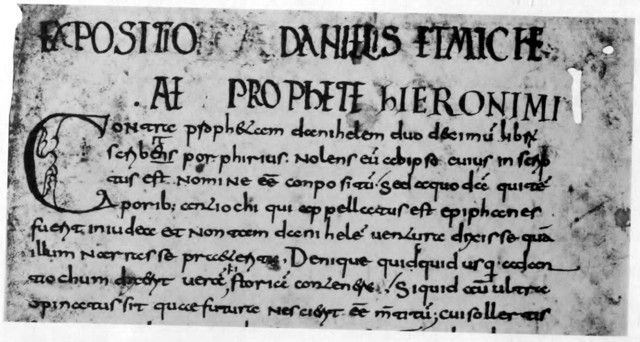 EXPOSITIO DANIHELIS ET MICHE
AE PROPHETE HIERONIMI
Contra prophetam danihelem duo decimũ librũ
scribens porphirius. Nolens eũ ab ipso cuius in scrip
tus est nomine eẽ conpositũ, sed a quodã qui tẽ
porib; antiochi qui appellatus est epiphanes
fuerit in iudea et non tam danihelẽ ventura dixisse quã
illum narrasse praeterita. Denique quidquid usq; ad an
tiochum dixerit verã storiã continere, Si quid aũ ultra
opinatus sit quae futura nescierit eẽ mentitũ; cui sollertis